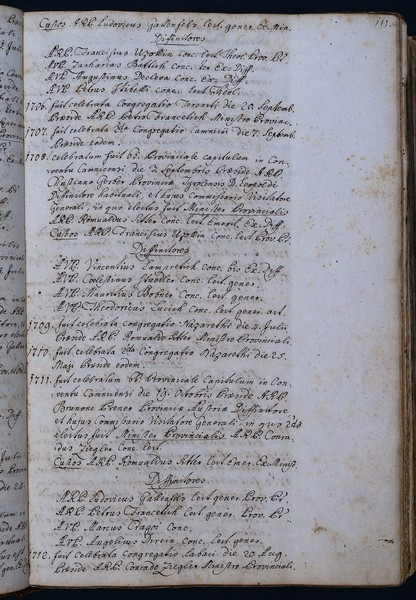 111.
Custos A.R.P. Ludovicus Lect. gener. Ex. Min.
Diffinitores
A.R.P. Franciscus Conc. Lect. Theol. Prov. Pr.
A.V.P. Zacharias Conc. Ex. Diff.
A.V.P. Augustinus Conc. Ex. Diff.
A.V.P. Petrus Conc. Lect. Theol.
1706. fuit celebrata Congregatio die 20. Septemb.
Præside A.R.P. Petro Ministro Provinc.
1707. fuit celebrata Congregatio Camnicii die 7. Septemb.
Præside eodem.
1708. celebratum fuit Provinciale capitulum in Con-
ventu Camnicensi die 2. Septembris Præside A.R.P.
Gerber Provinciæ S. Leopoldi
Difinitore habituali, et hujus commissario Visitatore
Generali, in quo electus fuit Minister Provincialis
A.R.P. Romualdus Lect. Emerit. Ex. Diff.
Custos A.R.P. Franciscus Conc. Lect. Prov. Pr.
Diffinitores
A.V.P. Vincentius Conc. bis Ex. Diff.
A.V.P. Coelestinus Conc. Lect. gener.
A.V.P. Mauritius Conc. Lect. gener.
A.V.P. Theodoricus Conc. Lect. gener. act.
1709. fuit celebrata Congregatio Nazarethi die 4. Julii
Præside A.R.P. Romualdo Ministro Provinciali.
1710. fuit celebrata 2da Congregatio Nazarethi die 25.
Maji Præside eodem.
1711. fuit celebratum Provinciale Capitulum in Con-
ventu Camnicensi die 19. Octobris Præside A.R.P.
Brunone Provinciæ Austriæ Diffinitore
et hujus commissario Visitatore Generali, in quo
electus fuit Minister Provincialis A.R.P. Conra-
dus Ziegler Conc. Lect.
Custos A.R.P. Romualdus Lect. Emer. Ex. Minist.
Diffinitores
A.R.P. Ludovicus Lect. gener. Prov. Pr.
A.R.P. Petrus Lect. gener. Prov. Pr.
A.V.P. Marcus Conc.
A.V.P. Angelicus Conc. Lect. gener.
1712. fuit Celebrata Congregatio Labaci die 20. Aug.
Præside A.R.P. Conrado Ziegler Ministro Provinciali.